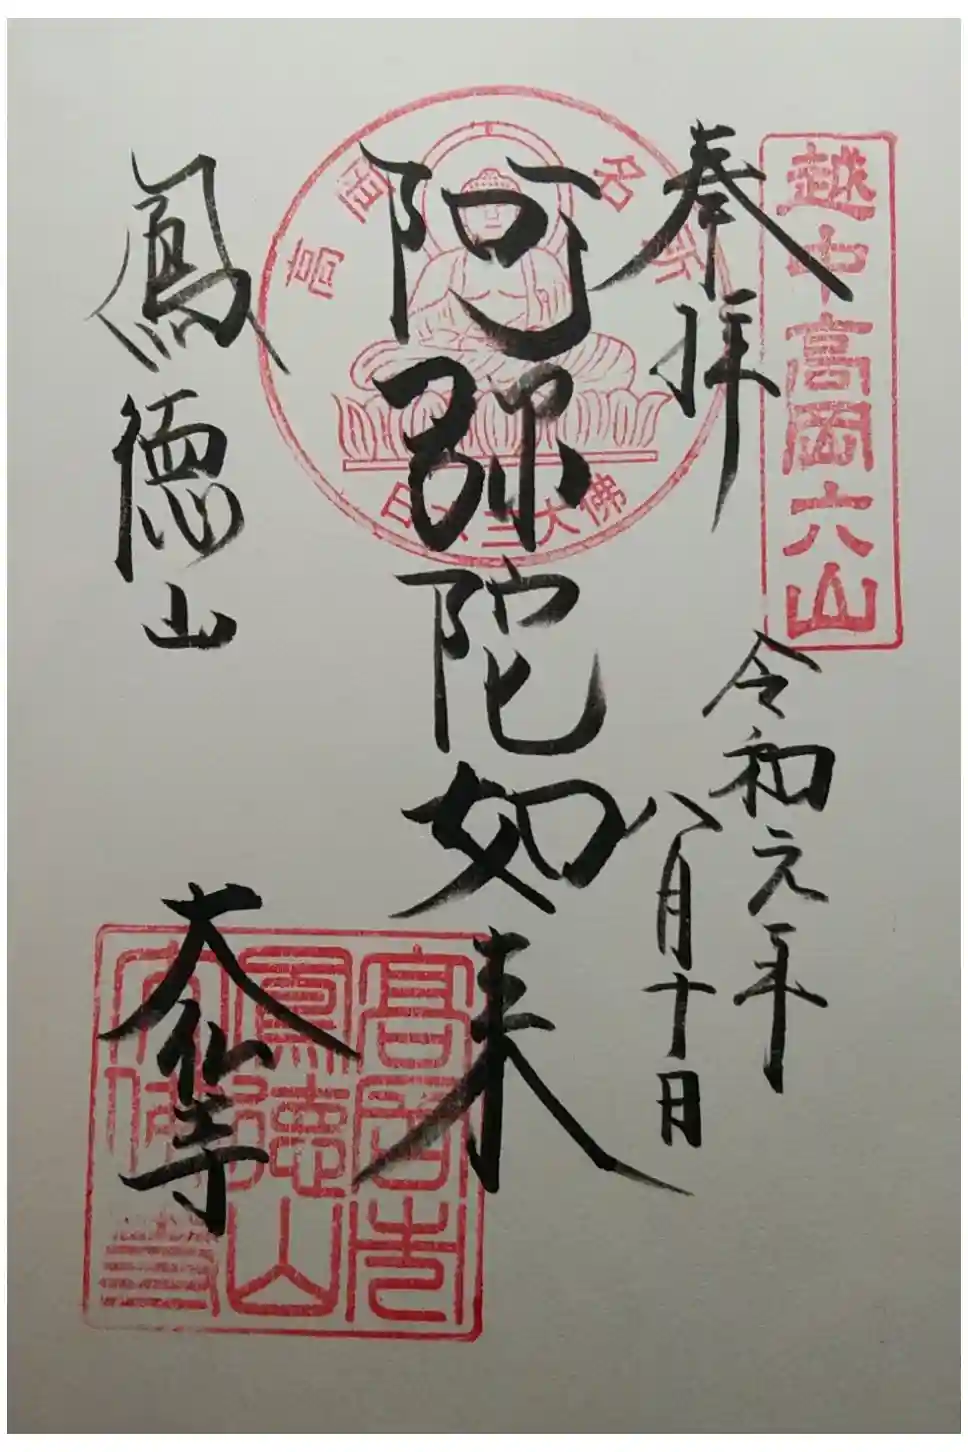 越中高岡六山
奉拝
令和元年
八月十日
高岡名所
日本三大佛
阿弥陀如来
鳳徳山
大仏寺
高岡市
鳳徳山